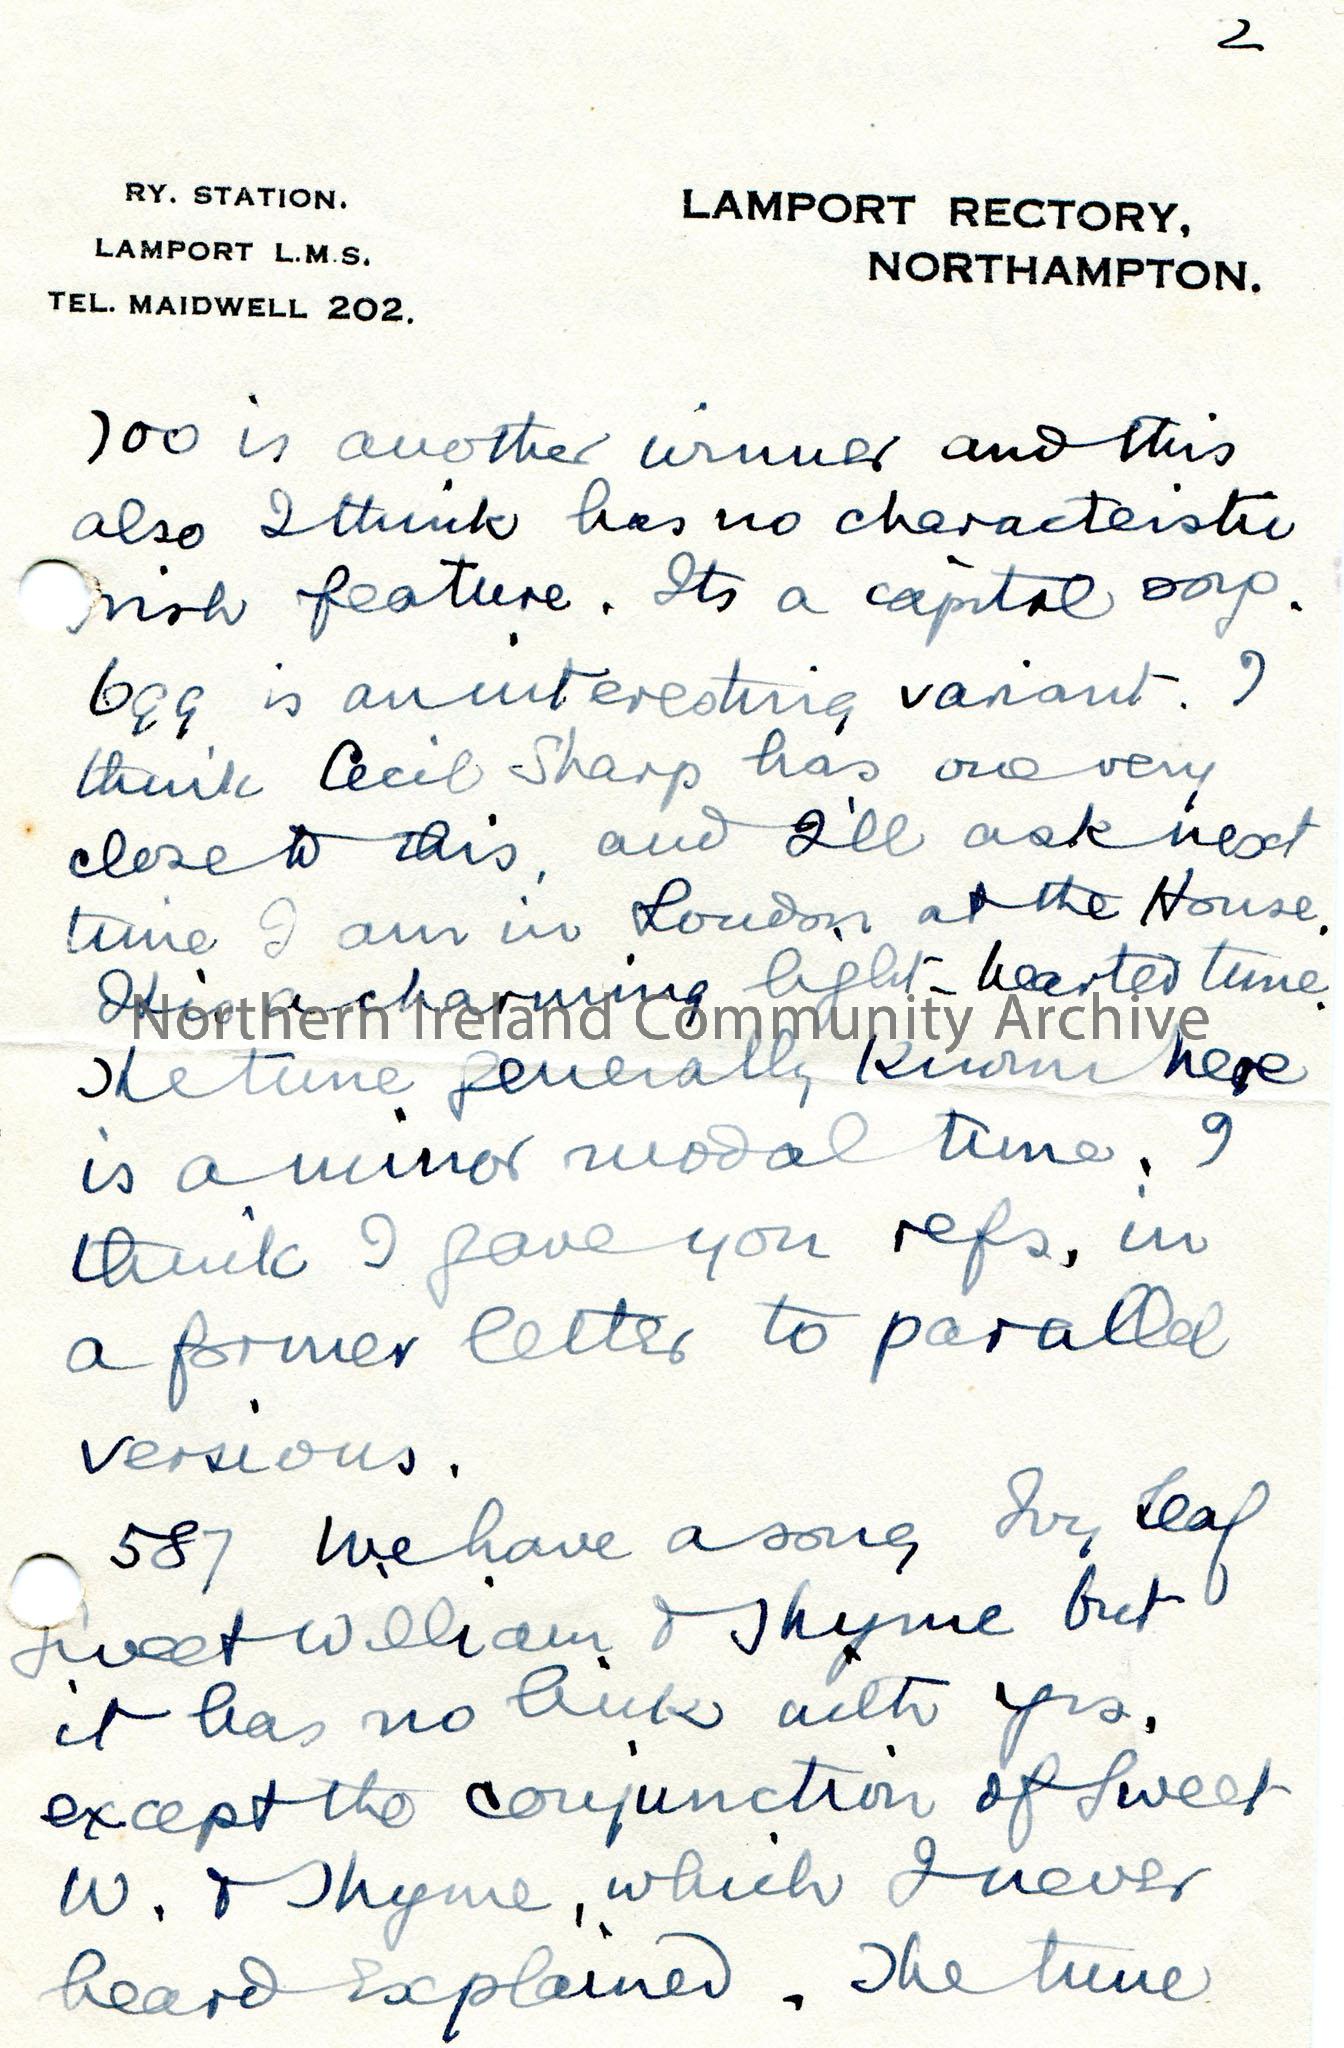 2
RY. STATION.
LAMPORT L.M.S.
TEL. MAIDWELL 202.
LAMPORT RECTORY,
NORTHAMPTON.
700 is another winner and this
also I think has no characteristic
Irish feature. Its a capital song.
699 is an interesting variant. I
think Cecil Sharp has one very
close to this, and I'll ask next
time I am in London at the House.
It is a charming light-hearted tune.
Northern Ireland Community Archive
The tune generally known here
is a minor modal tune. I
think I gave you refs. in
a former letter to parallel
versions.
587 We have a song Ivy Leaf
Sweet William & Thyme but
it has no link with yrs,
except the conjunction of Sweet
W. & Thyme, which I never
heard explained. The tune